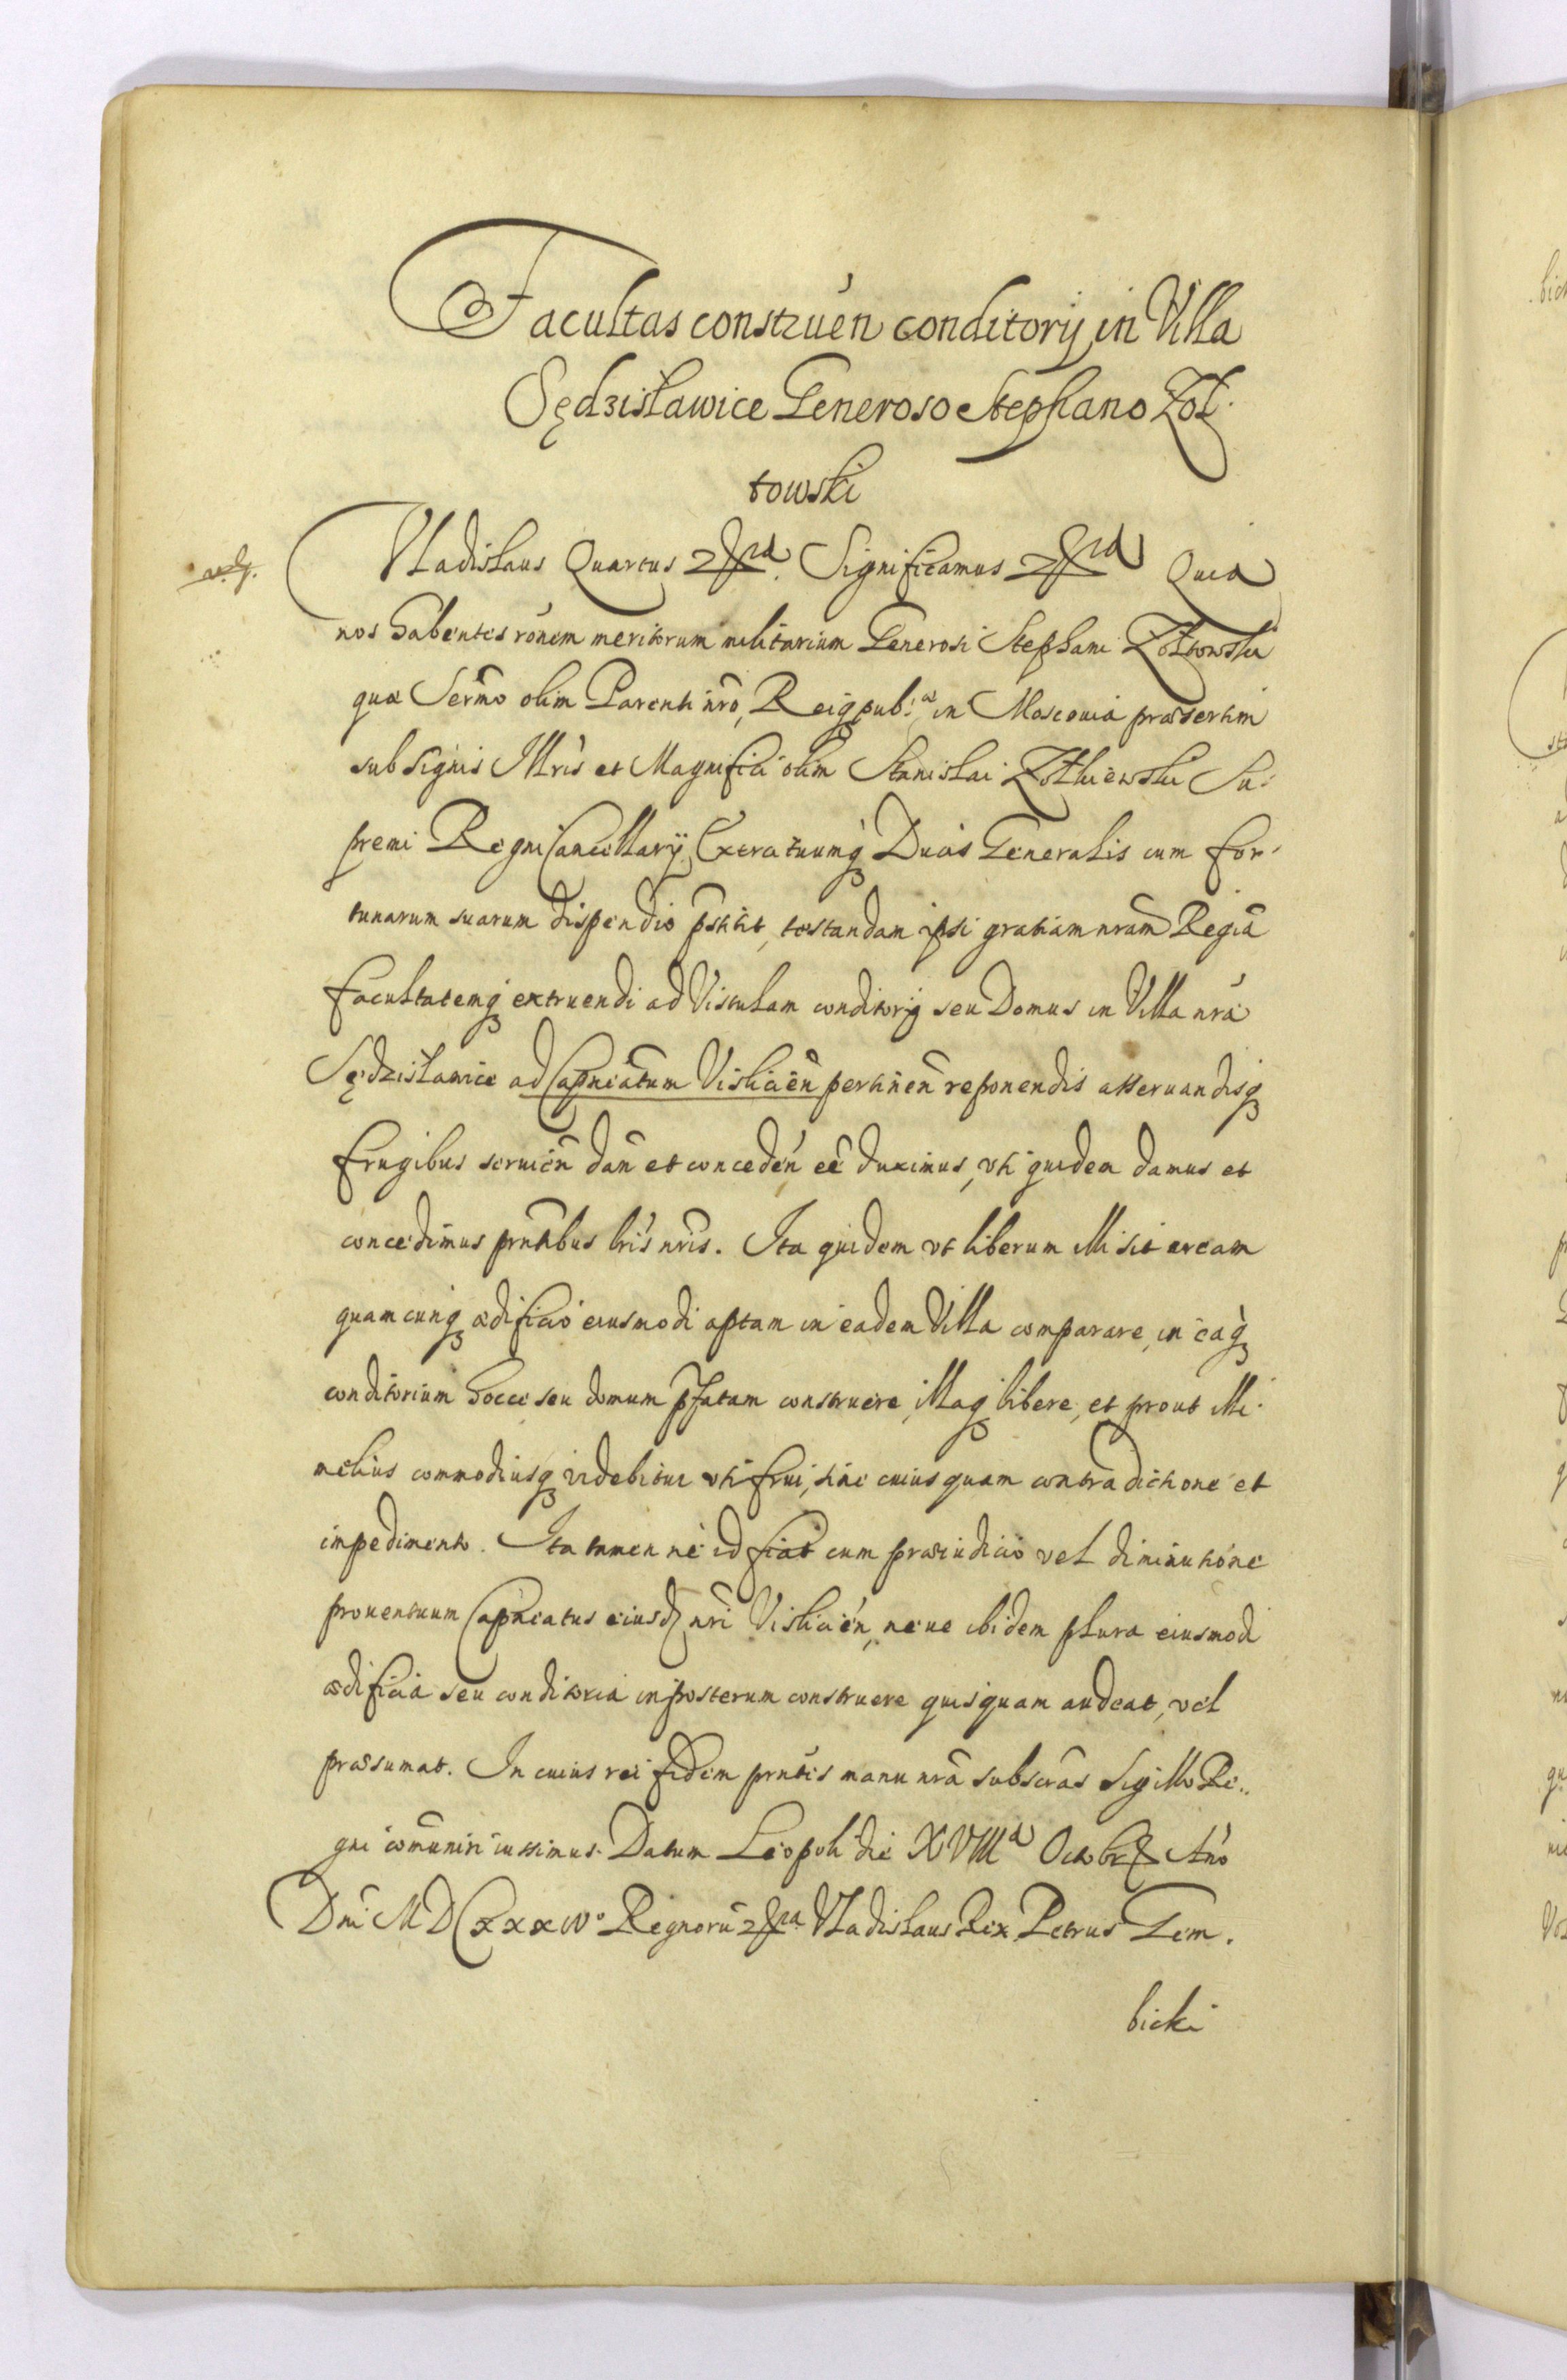 Facultas construen conditorij in Villa
Sędzisławice Generoso Stephano Zoł-
towski
Vladislaus Quartus Significamus Quia
nos habentes rónem meritorum militarium Generosi Stephani Zołtowski
quæ Sermo olim Parenti nro, Reiqpub: in Moscouia præsertim
sub signis Illris et Magnifici olim Stanislai Zołkiewski Su-
premi Regni Cancellarij Exercituumq Ducis Generalis cum for-
tunarum suarum dispendio pstitit, testandam ipsi gratiam nram Regiā
facultatemq extruendi ad Vistulam conditorij seu Domus in Villa nra
Sędzisławice ad Capneatum Vislicien pertinen reponendis asseruandisq
frugibus seruien dan et conceden eē duximus, vti quidem damus et
concedimus prntibus lris nris. Ita quidem vt liberum illi sit aream
quamcunq ædificio eiusmodi aptam in eadem Villa comparare, in eaq
conditorium hocce seu domum pfatam construere, illaq libere, et prout illi
melius commodiusq videbitur vti frui, sine cuiusquam contradictione et
impedimento. Ita tamen ne id fiat cum præiudicio vel diminutione
prouentuum Capneatus eiusd nri Vislicien, neue ibidem plura eiusmodi
ædificia seu conditoria inposterum construere quisquam audeat, vel
præsumat. In cuius rei fidem prntes manu nra subscras Sigillo Re-
gni comuniri iussimus. Datum Leopoli die XVIII Octobr Ano
Dni MDCxxxiv° Regnorū Vladislaus Rex Petrus Gem-
bicki